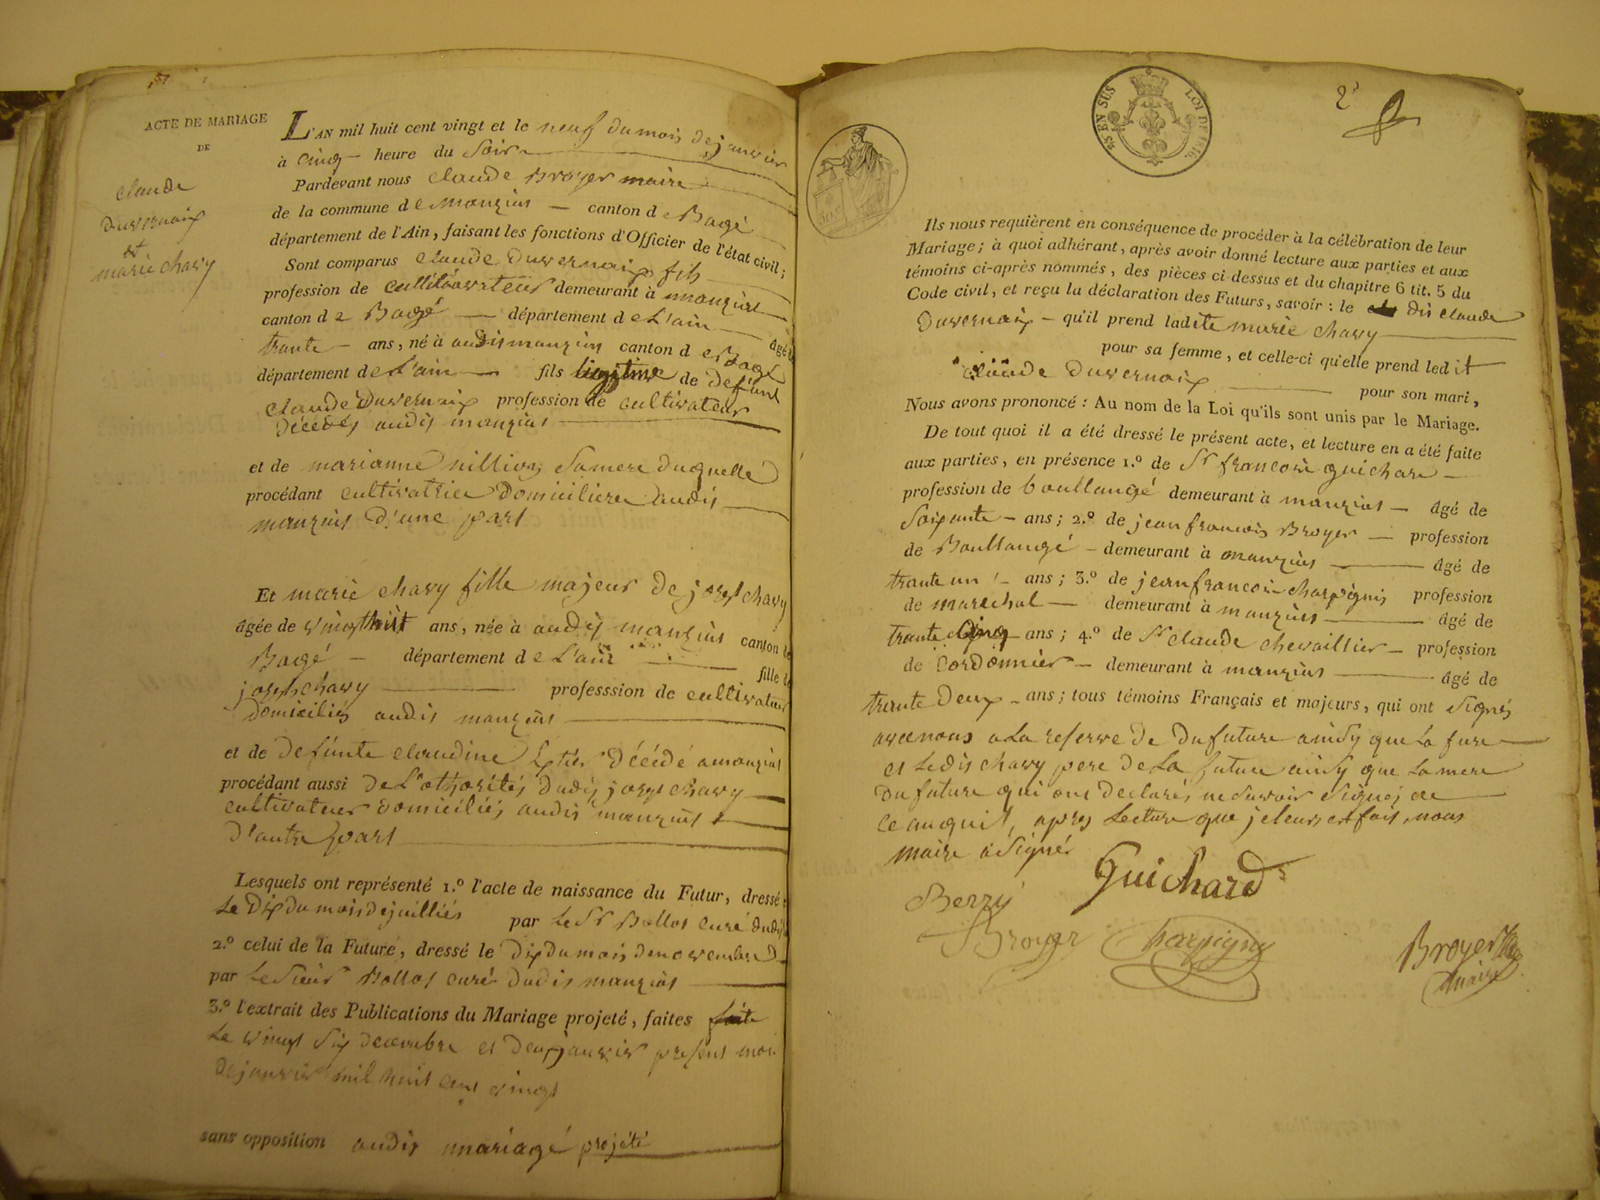 ACTE DE MARIAGE
DE
claude
duvernaix
et
marie chavy
L'AN mil huit cent vingt et le neuf du mois de janvier
à cinq heure du soir
Pardevant nous claude Broyer maire
de la commune de manziat canton de Bagé
département de l'Ain, faisant les fonctions d'Officier de l'état civil;
Sont comparus claude duvernaix fils
profession de cultivateur demeurant à manziat
canton de Bagé département de L'ain âgé
trante ans, né à audis manziat canton de Bagé
département de L'ain fils legitime de defunt
claude duvernaix profession de cultivateur
décédé audis manziat
et de marianne sa mere duquelle
procédant cultivatrice domiciliere audis
manziat d'une part
Et marie chavy fille majeur de josept chavy
âgée de vingt huit ans, née à audis manziat canton de
Bagé département de L'ain fille de
joseph chavy professsion de cultivateur
domiciliés audis manziat
et de defunte claudine décédé a manziat
procédant aussi de L'othorités dudis josept chavy
cultivateur domiciliés audis manziat
d'autre part
Lesquels ont représenté 1.º l'acte de naissance du Futur, dressé
Le Dix du mois de juilliés par Le Sr Bollos curé dudis
2.º celui de la Future, dressé le Dix du mois de novembre
par Le Sieur Bollos curé dudis manziat
3.º l'extrait des Publications du Mariage projeté, faites
Le vingt six decembre et deux janvier presens mois
de janvier mil huit cent vingt
sans opposition audis mariagé projété
2e
LOI DE 1816.
Ils nous requièrent en conséquence de procéder à la célébration de leur
Mariage; à quoi adhérant, après avoir donné lecture aux parties et aux
témoins ci-après nommés, des pièces ci-dessus et du chapitre 6 tit. 5 du
Code civil, et reçu la déclaration des Futurs, savoir: le dis claude
duvernaix qu'il prend ladite marie chavy
pour sa femme, et celle-ci qu'elle prend ledit
claude duvernaix pour son mari,
Nous avons prononcé: Au nom de la Loi qu'ils sont unis par le Mariage.
De tout quoi il a été dressé le présent acte, et lecture en a été faite
aux parties, en présence 1.º de Sr francois guichare
profession de boullangé demeurant à manziat âgé de
soixante ans; 2.º de jean francois Broyer profession
de Boullangé demeurant à manziat âgé de
trante un ans; 3.º de jean francois charpignis profession
de marechal demeurant à manziat âgé de
trante Cinq ans; 4.º de Sr claude chevaillier profession
de Cordonnier demeurant à manziat âgé de
trante Deux ans; tous témoins Français et majeurs, qui ont signés
avec nous a La reserve de du future ainsy que La fure
et Ledis chavy pere de La future ainsy que La mere
du future qui ont declarés ne savoir signés de
ce anquis, apres Lecture que je leurs est fais, nous
maire a signés
Guichard
Berry
Broyer
Charpigny
Broyer
maire